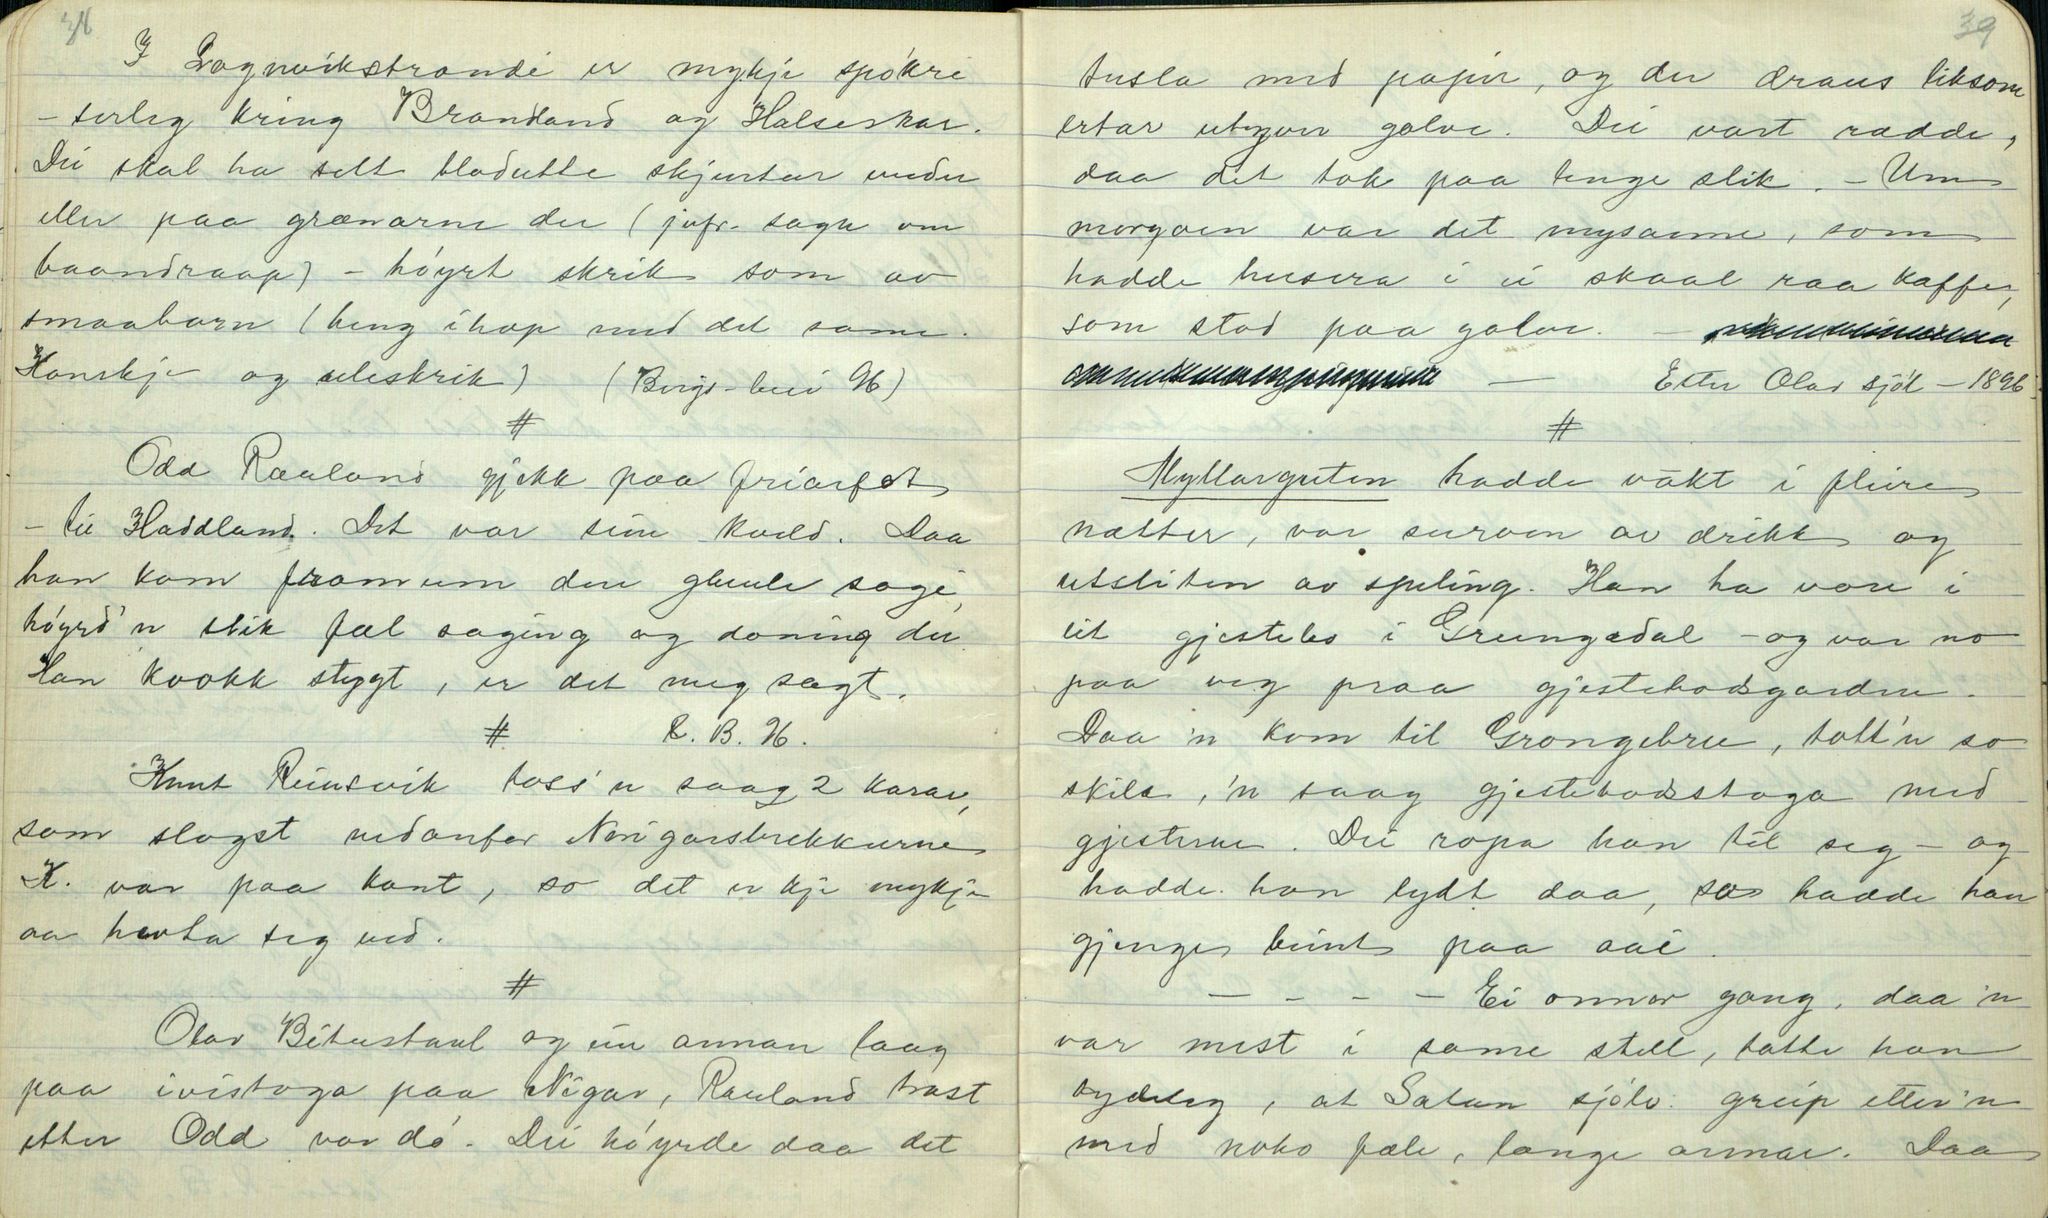 38
I Lognvikstrondi er mykje spókri
- serleg kring Brandand og Halseskar.
Dei skal ha sett blodutte skjurtur under
eller paa grænarne der (jvfr. sagn om
baandraap) - hóyrt skrik som av
smaabarn (heng ihop med det same.
Kanskje og uleskrik) (Bergs-heii H)
#
Odd Rauland gjekk paa friarfot
- til Haddland. Det var sein kveld. Daa
han kom framum den gamle sagi,
hóyrd'n slik fæl saging og doning der.
Han kvokk stygt, er det meg sagt.
# R. B. H.
Knut Reinsvik toss'n saag 2 karar,
som slogst nedanfor Nerigarsbrekkurne
K. var paa kant, so det er kje mykje
aa hevta seg ved.
#
Olav Bitustaul og ein annan laag
paa ivistoga paa Nigar, Rauland trast
etter Odd var dó. Dei hóyrde daa det
39
tusla med papir, og der draus liksom
ertar utyver golve. Dei vart rædde,
daa det tok paa lenge slik. - Um
morgoen var det mysanne, som
hadde husera i ei skaal raa kaffe,
som stod paa golve. -
- Etter Olav sjól - 1896.
#
Myllarguten hadde våkt i fleire
nætter, var surven av drikk og
utsliten av speling. Han ha vore i
eit gjestebo i Grungedal - og var no
paa veg praa gjestebodsgarden.
Daa 'n kom til Grongebru, tott'n so
skila, 'n saag gjestebodsstoga med
gjesterne. Dei ropa han til seg - og
hadde han lydt daa, so hadde han
gjenge beint paa aai.
- - - - Ei onnor gong, daa 'n
var mest i same stell, totte han
tydeleg, at Satan sjólv greip etter'n
med noko fæle, lange armar. Daa